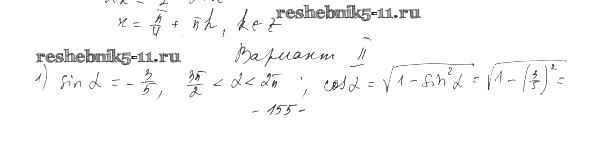 x = π/4 + πk, k ∈ Z
reshebnik5-11.ru
reshebnik5-11.ru
Вариант II
1) sin α = - 3/5, 3π/2 < α < 2π ; cos α = √(1 - sin²α) = √(1 - (3/5)²) =
- 155 -